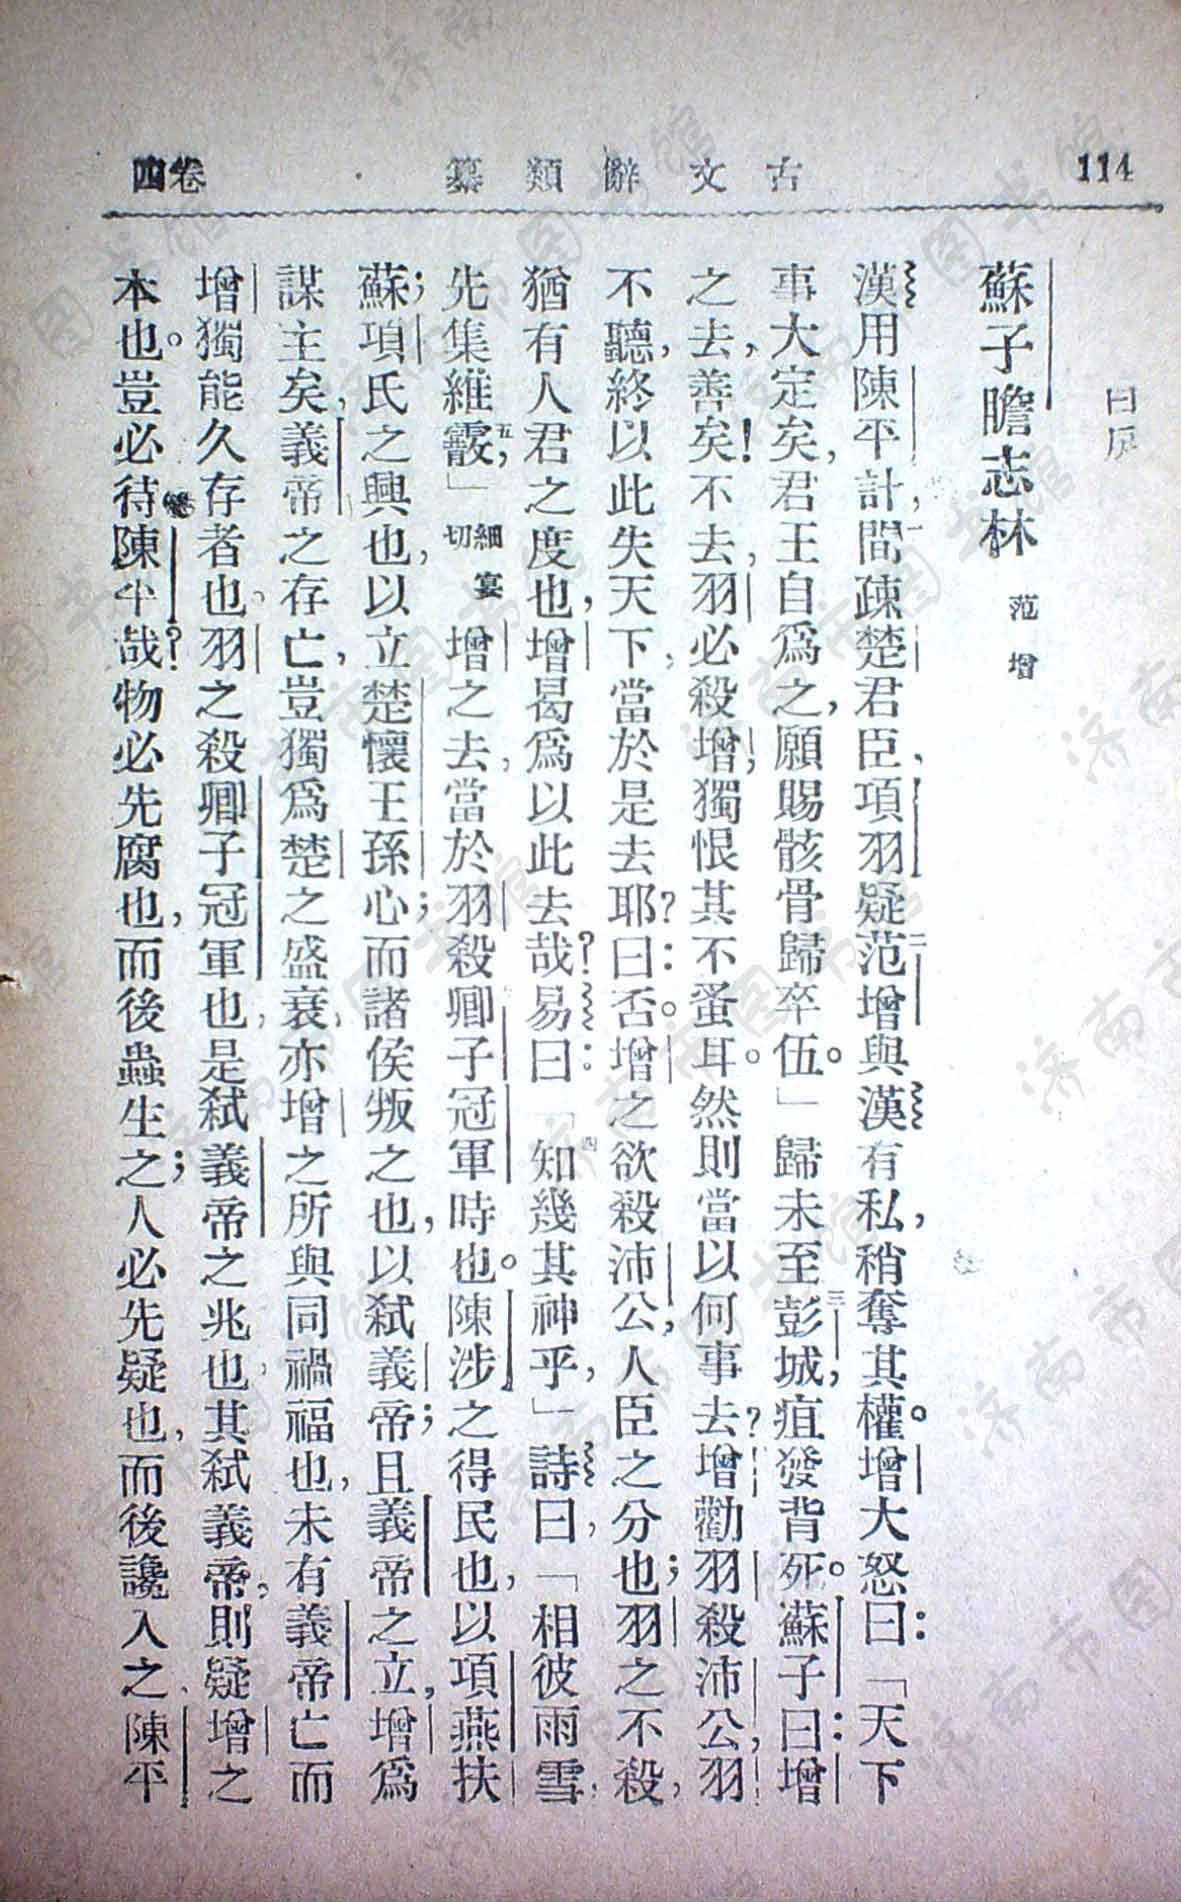 114
古文辭類纂
卷四
蘇子瞻志林 范增
漢用陳平計,一間疎楚君臣,項羽疑范二增與漢有私,稍奪其權。增大怒曰:「天下
事大定矣,君王自爲之,願賜骸骨歸卒伍。」歸未至彭三城,疽發背死。蘇子曰:增
之去,善矣!不去,羽必殺增;獨恨其不蚤耳。然則當以何事去?增勸羽殺沛公,羽
不聽,終以此失天下,當於是去耶?曰:否。增之欲殺沛公,人臣之分也;羽之不殺,
猶有人君之度也,增曷爲以此去哉?易曰:「知四幾其神乎,」詩曰,「相彼雨雪,
先集維霰,五」 細宴切 增之去,當於羽殺卿子冠軍時也。陳涉之得民也,以項燕扶
蘇;項氏之興也,以立楚懷王孫心;而諸侯叛之也,以弒義帝;且義帝之立,增爲
謀主矣,義帝之存亡,豈獨爲楚之盛衰,亦增之所與同禍福也,未有義帝亡而
增獨能久存者也。羽之殺卿子冠軍也,是弒義帝之兆也,其弒義帝,則疑增之
本也。豈必待陳平哉?物必先腐也,而後蟲生之;人必先疑也,而後讒入之,陳平